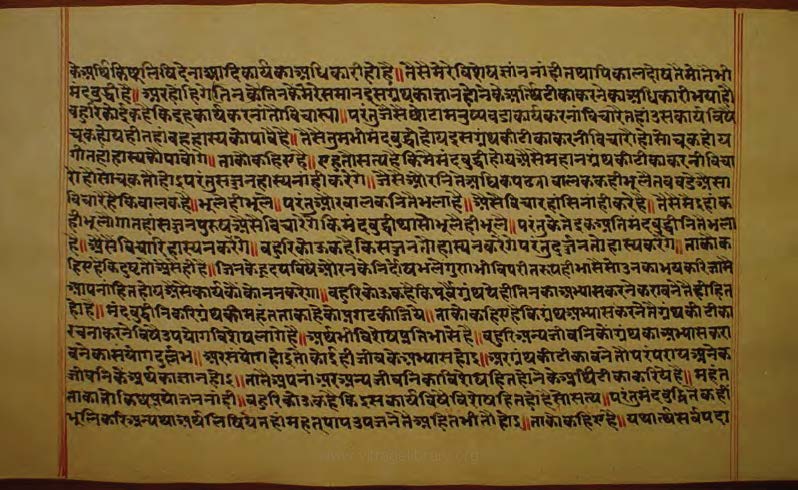 के अर्थि किछू लिषि देना आदि कार्य का अधिकारी हो है॥ तैसै मेरे विशेष ज्ञान नांही तथापि काल दोष तै मो तै भी
मंद बुद्धी है॥ अर होहिगे तिन के तिन कै मेरे समान इस ग्रंथ का ज्ञान होने के अर्थि टीका करने का अधिकारी भया हौं
बहुरि कोई कहै कि इह कार्य करनां तौ विचास्या॥ परंतु जैसै छोटा मनुष्य बडा कार्य करना विचारै तहां उस कार्य विषै
चूक होय ही तहां वह हास्य को पावै है॥ तैसै तुम भी मंद बुद्धी होय इस ग्रंथ की टीका करनी विचारो हो सो चूक होय
गी तहां हास्य कौ पावोगे॥ ताकौ कहिए है॥ एहु तो सत्य है कि मै मंद बुद्धी होय अैसे महान ग्रंथ की टीका करनी विचा
रो हो सो चूक तो होइ परंतु सज्जन हास्य नांही करेंगे॥ जैसै औरनि तै अधिक पढता बालक कही भूलै तब बडे अैसा
विचारै है कि बालक है॥ भूलै ही भूलै॥ परंतु और बालकनि तै भला है॥ अैसे विचारि हासि नांही करै है॥ तैसै मै इहां क
ही भूलौंगा तहां सज्जन पुरुष अैसे विचारैंगे कि मंद बुद्धी था सो भूलै ही भूलै॥ परंतु केतेइक अति मंद बुद्धीनि तै भला
है॥ अैसे विचारि हास्य न करेंगे॥ बहुरि कोऊ कहै कि सज्जन तो हास्य न करेंगे परंतु दुर्जन तो हास्य करेंगे॥ ताकौ क
हिए है कि दुष्ट तो अैसे ही है॥ जिन के हृदय विषै औरन के निर्दोष भले गुण भी विपरीत रूप ही भासै सो उन का भय करि जामै
आपनां हित होय अैसे कार्य कौ कौन न करेगा॥ बहुरि कोऊ कहै कि पूर्व ग्रंथ थे ही तिन का अभ्यास करने करावने तै ही हित
हो है॥ मंद बुद्धीनि करि ग्रंथ की महंतता काहे को प्रगट कीजिये॥ ताकौ कहिए है कि ग्रंथ अभ्यास करने तै ग्रंथ की टीका
रचना करने विषै उपयोग विशेष लागै है॥ अर्थ भी विशेष प्रतिभासै है॥ बहुरि अन्य जीवनि कौ ग्रंथ का अभ्यास करा
वने का संयोग दुर्लभ॥ अर संयोग होइ तो कोई ही जीव कै अभ्यास होइ॥ अर ग्रंथ की टीका बनै तो परंपराय अनेक
जीवनि कै अर्थ का ज्ञान होइ॥ तातै अपनां अर अन्य जीवनि का विशेष हित होने के अर्थि टीका करिये है॥ महंत
ता का तो किछू प्रयोजन नांही॥ बहुरि कोऊ कहै कि इस कार्य विषै विशेष हित हो है सो सत्य॥ परंतु मंद बुद्धि तै कही
भूलि करि अन्यथा अर्थ लिषिये तहां महत पाप उपजने तै अहित भी तो होइ॥ ताकौ कहिए है॥ यथार्थ सर्व पदा
www.vitragelibrary.org